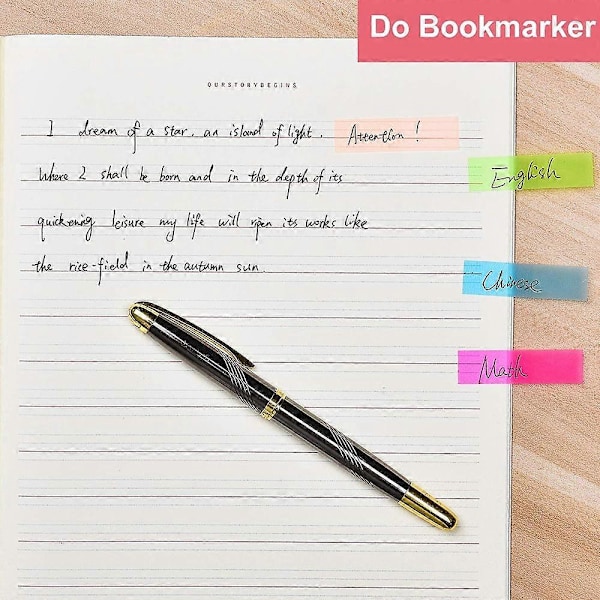 Do Bookmarker
OURSTORYBEGINS
I dream of a star, an island of light. Attention!
Where I shall be born and in the depth of its
English
quickening leisure my life will ripen its works like
the rice-field in the autumn sun.
Chinese
Math